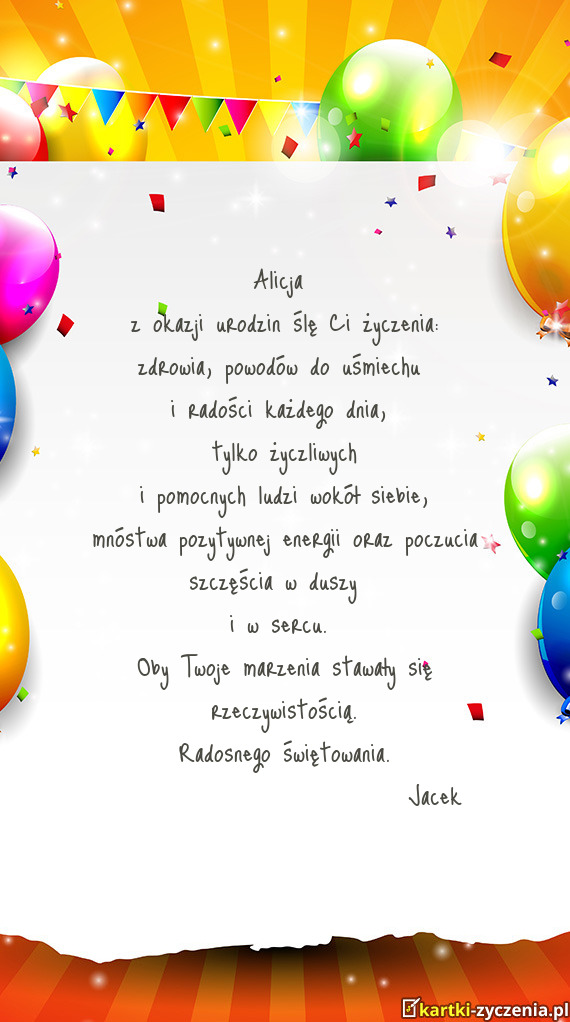 Alicja
z okazji urodzin ślę Ci życzenia:
zdrowia, powodów do uśmiechu
i radości każdego dnia,
tylko życzliwych
i pomocnych ludzi wokół siebie,
mnóstwa pozytywnej energii oraz poczucia
szczęścia w duszy
i w sercu.
Oby Twoje marzenia stawały się
rzeczywistością.
Radosnego świętowania.
Jacek
kartki-zyczenia.pl